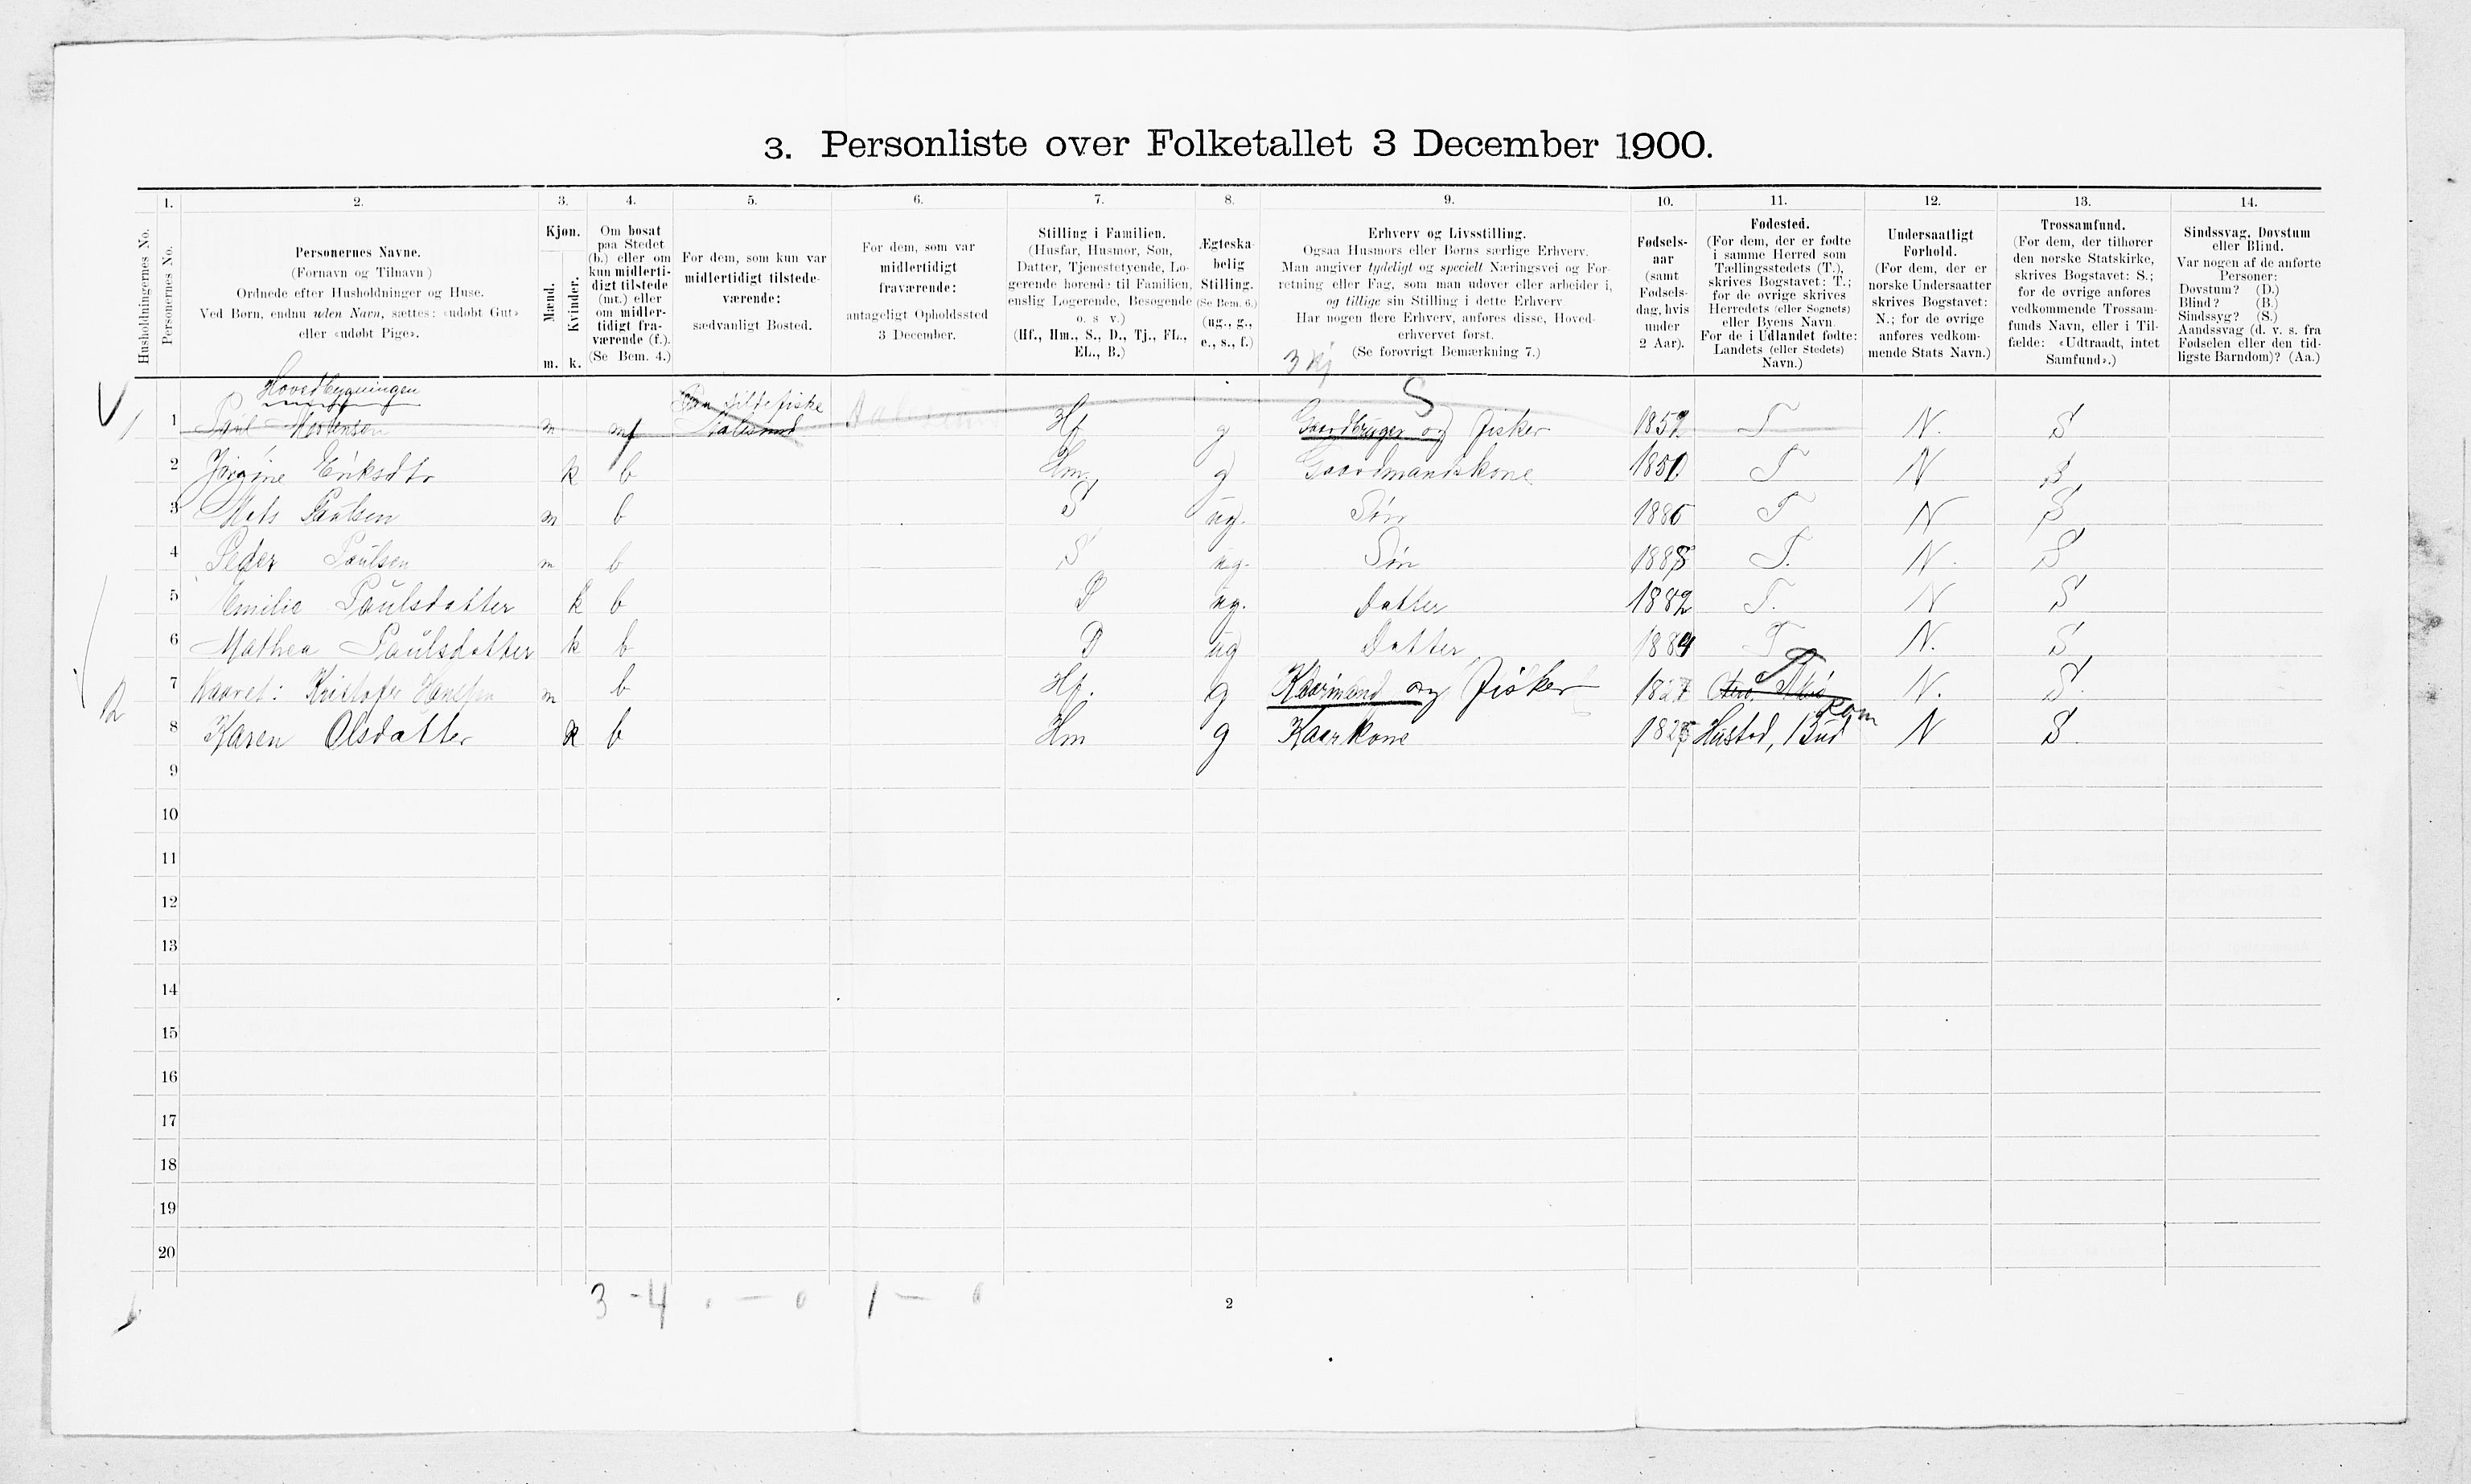 3. Personliste over Folketallet 3 December 1900.
1. 2. 3. 4. 5. 6. 7. 8. 9. 10. 11. 12. 13. 14.
Husholdningernes No.
Personernes No.
Personernes Navne.
(Fornavn og Tilnavn)
Ordnede efter Husholdninger og Huse.
Ved Børn, endnu uden Navn, sættes: «udøbt Gut»
eller «udøbt Pige».
Kjøn.
Mænd.
Kvinder.
m. k.
Om bosat
paa Stedet
(b.) eller om
kun midlerti-
digt tilstede
(mt.) eller
om midler-
tidigt fra-
værende (f.).
(Se Bem. 4.)
For dem, som kun var
midlertidigt tilstede-
værende:
sædvanligt Bosted.
For dem, som var
midlertidigt
fraværende:
antageligt Opholdssted
3 December.
Stilling i Familien.
(Husfar, Husmor, Søn,
Datter, Tjenestetyende, Lo-
gerende hørende til Familien,
enslig Logerende, Besøgende
o. s v.)
(Hf., Hm., S., D., Tj., FL.,
EL., B.)
Ægteska-
belig
Stilling.
(Se Bem. 6.)
(ug., g.,
e., s., f.)
Erhverv og Livsstilling.
Ogsaa Husmors eller Børns særlige Erhverv.
Man angiver tydeligt og specielt Næringsvei og For-
retning eller Fag, som man udøver eller arbeider i,
og tillige sin Stilling i dette Erhverv
Har nogen flere Erhverv, anføres disse, Hoved-
erhvervet først.
(Se forøvrigt Bemærkning 7.)
Fødsels-
aar
(samt
Fødsels-
dag, hvis
under
2 Aar).
Fødested.
(For dem, der er fødte
i samme Herred som
Tællingsstedets (T.),
skrives Bogstavet: T.;
for de øvrige skrives
Herredets (eller Sognets)
eller Byens Navn.
For de i Udlandet fødte:
Landets (eller Stedets)
Navn.)
Undersaatligt
Forhold.
(For dem, der er
norske Undersaatter
skrives Bogstavet:
N.; for de øvrige
anføres vedkom-
mende Stats Navn.)
Trossamfund.
(For dem, der tilhører
den norske Statskirke,
skrives Bogstavet: S.;
for de øvrige anføres
vedkommende Trossam-
funds Navn, eller i Til-
fælde: «Udtraadt, intet
Samfund».)
Sindssvag, Døvstum
eller Blind.
Var nogen af de anførte
Personer:
Døvstum? (D.)
Blind? (B.)
Sindssyg? (S.)
Aandssvag (d. v. s. fra
Fødselen eller den tid-
ligste Barndom)? (Aa.)
Hovedbygningen
S
1 m Hf g Gaardbruger og Fisker 1852 T N. S
2 Jørgine Eriksdtr k b Hm g Gaardmandskone 1850 T N S
3 Mats Paulsen m b S ug. Søn 1886 T N S
4 Peder Paulsen m b S ug. Søn 1888 T. N. S
5 Emilie Paulsdatter k b D ug. Datter 1882 T. N S
6 Mathea Paulsdatter k b D ug Datter 1884 T N. S
2 7 Kaaret: Kristofer Hansen m b Hf. g Kaarmand og Fisker 1827 T N. S.
8 Karen Olsdatter k b Hm g Kaarkone Hustad, Bud Rom N S.
9
10
11
12
13
14
15
16
17
18
19
20
3 - 4 0 - 0 1 - 0
2